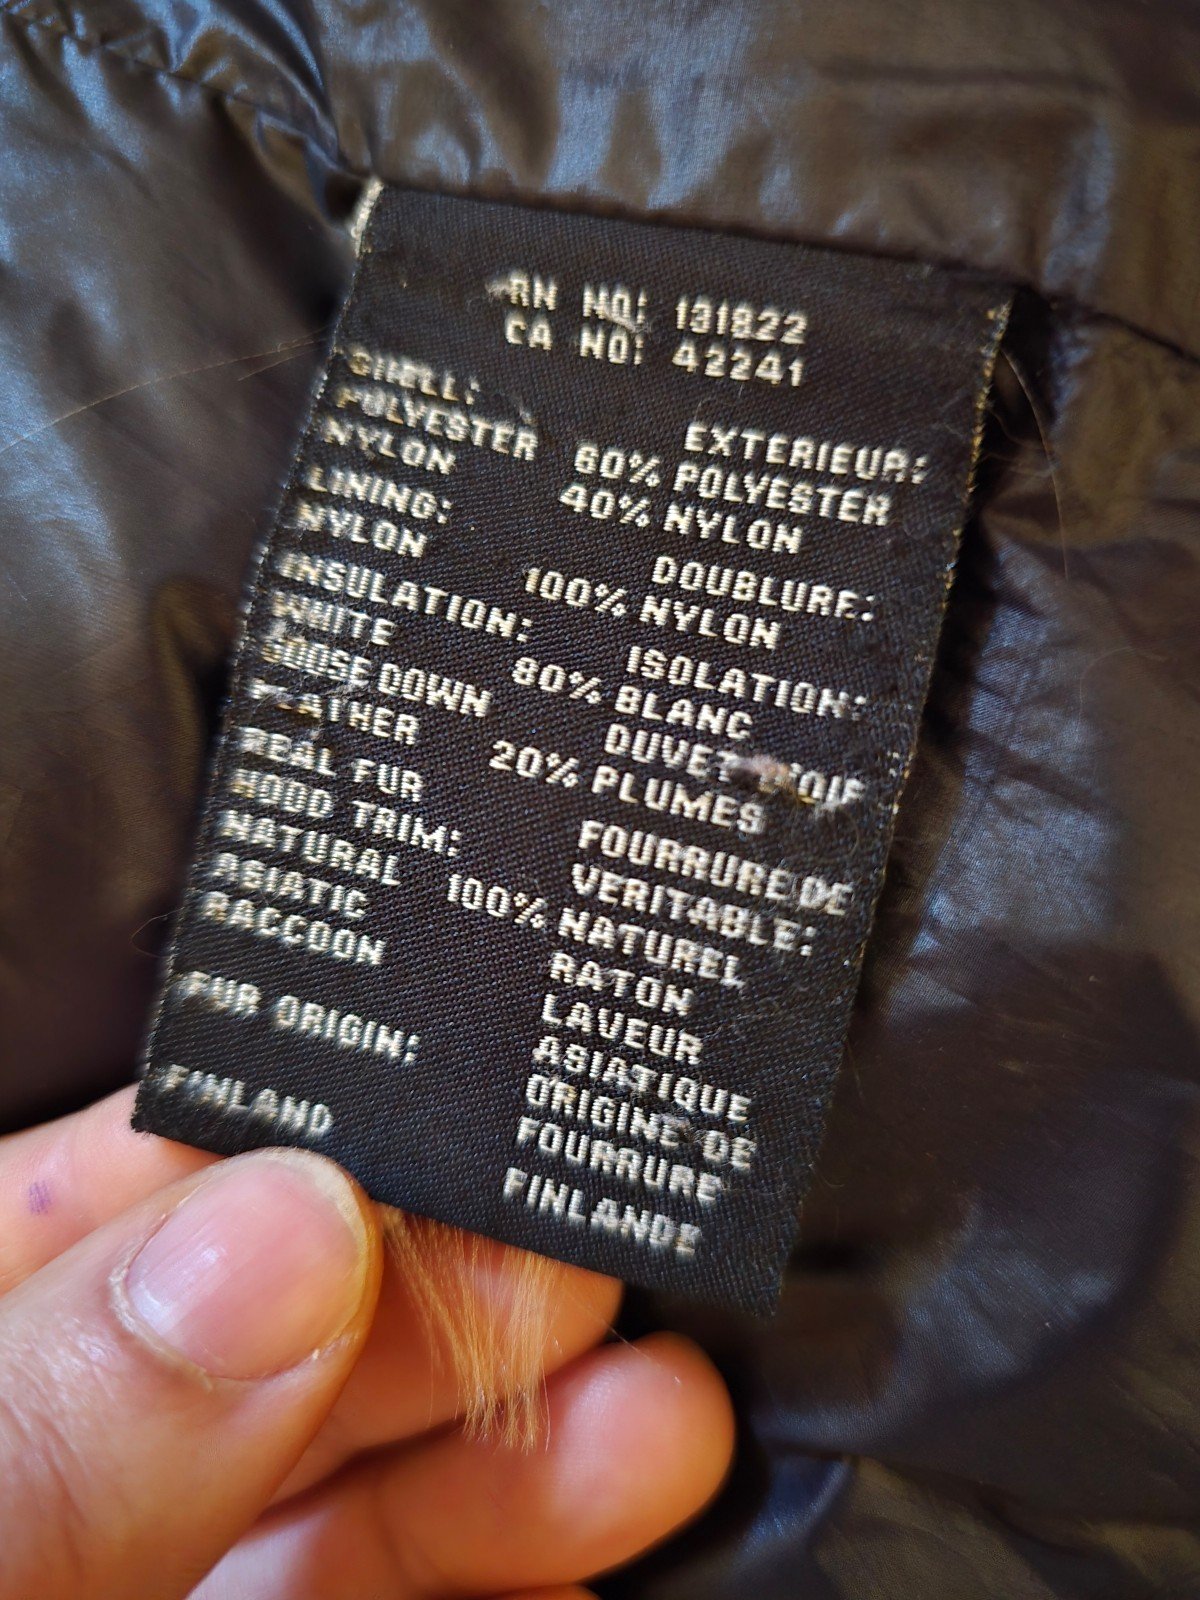 RN NO: 131822
CA NO: 42241
SHELL:
POLYESTER 60%
NYLON 40%
LINING:
NYLON 100%
INSULATION:
WHITE
GOOSE DOWN 80%
FEATHER 20%
REAL FUR
HOOD TRIM:
NATURAL 100%
ASIATIC
RACCOON
FUR ORIGIN:
FINLAND
EXTERIEUR:
POLYESTER
NYLON
DOUBLURE:
NYLON
ISOLATION:
BLANC
DUVET D'OIE
PLUMES
FOURRURE DE
VERITABLE:
NATUREL
RATON
LAVEUR
ASIATIQUE
ORIGINE DE
FOURRURE
FINLANDE